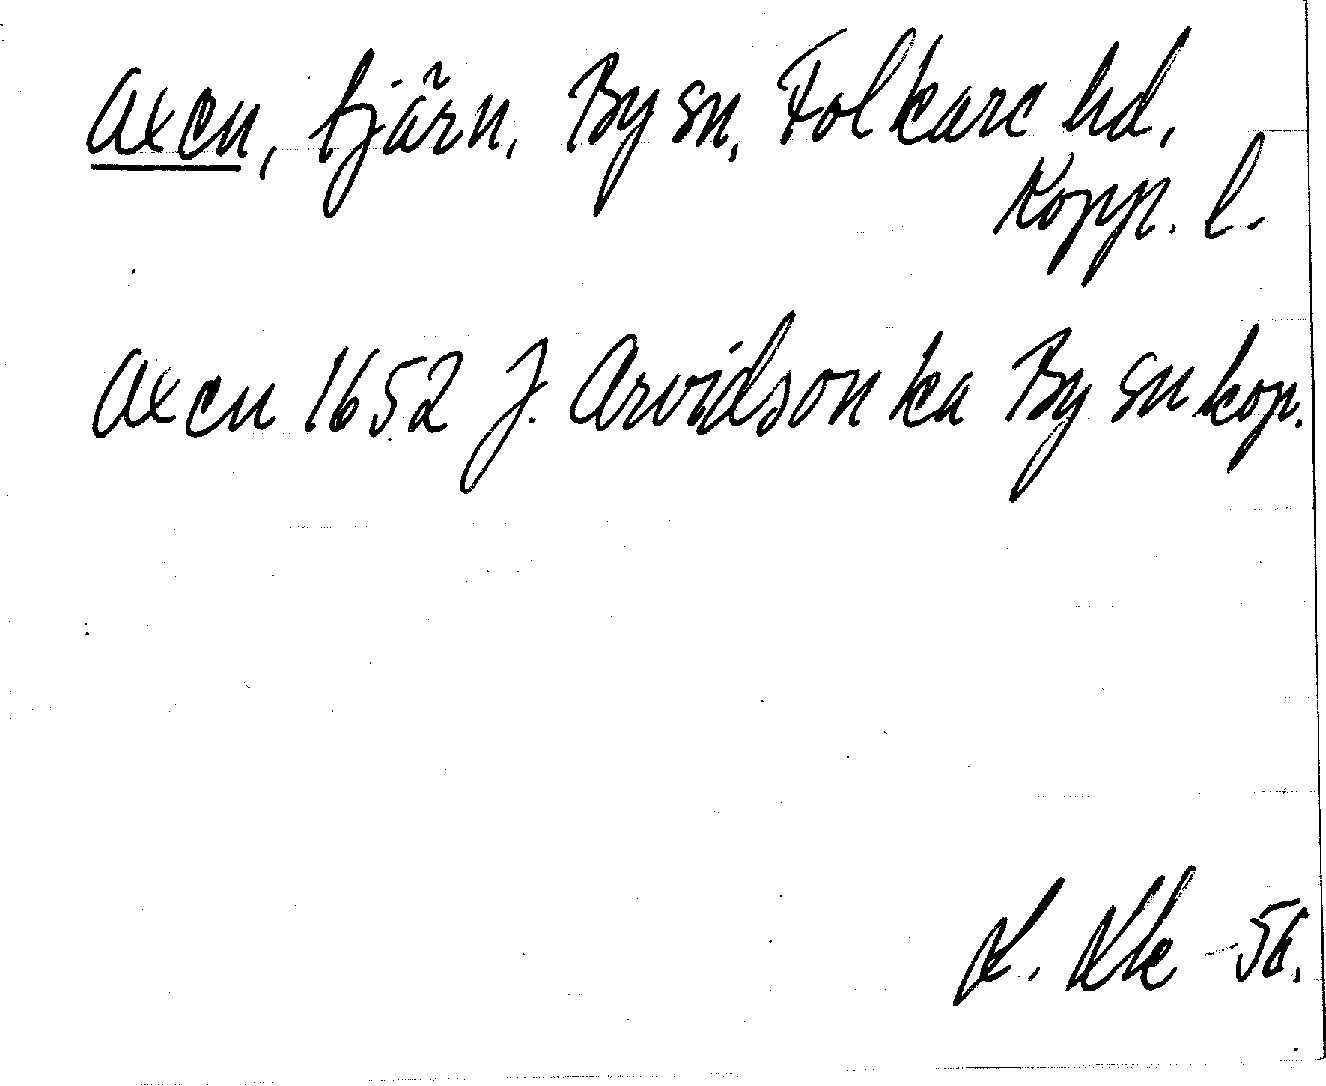 Axen, tjärn, By sn, Folkare hd,
Kopp. l.
Axen 1652 J. Arvidson ka By sn kop.
K. Kk -56.